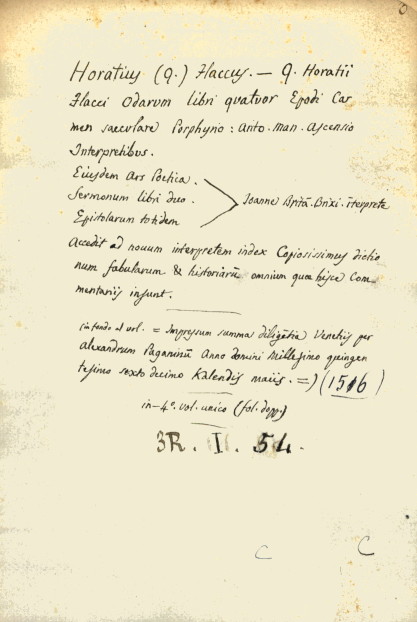 Horatius (Q.) Flaccus. — Q. Horatii
Flacci Odarum libri quatuor Epodi Car
men saeculare Porphyrio: Anto. Man. Ascensio
Interpretibus.
Eiusdem Ars Poetica.
Sermonum libri duo. Ioanne Britā. Brixi. īterprete
Epistolarum totidem
Accedit ad nouum interpretem index Copiosissimus dictio
num fabularum & historiarū omnium quae hisce Com-
mentariis insunt.
(in fondo al vol. = Impressum summa diligētia Venetiis per
Alexandrum Paganinū Anno domini Millesimo quingen
tesimo sexto decimo Kalendis maiis. =) (1516)
in-4°. vol. unico (fol. dopp.)
3R. I. 54.
C C